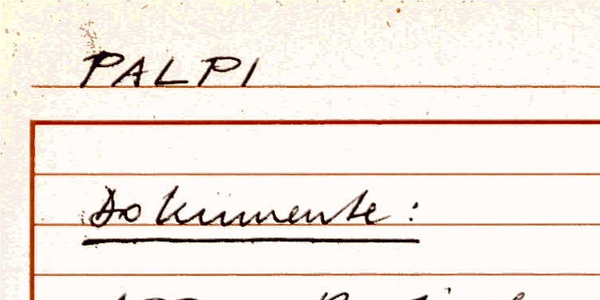 PALPI
Dokumente: